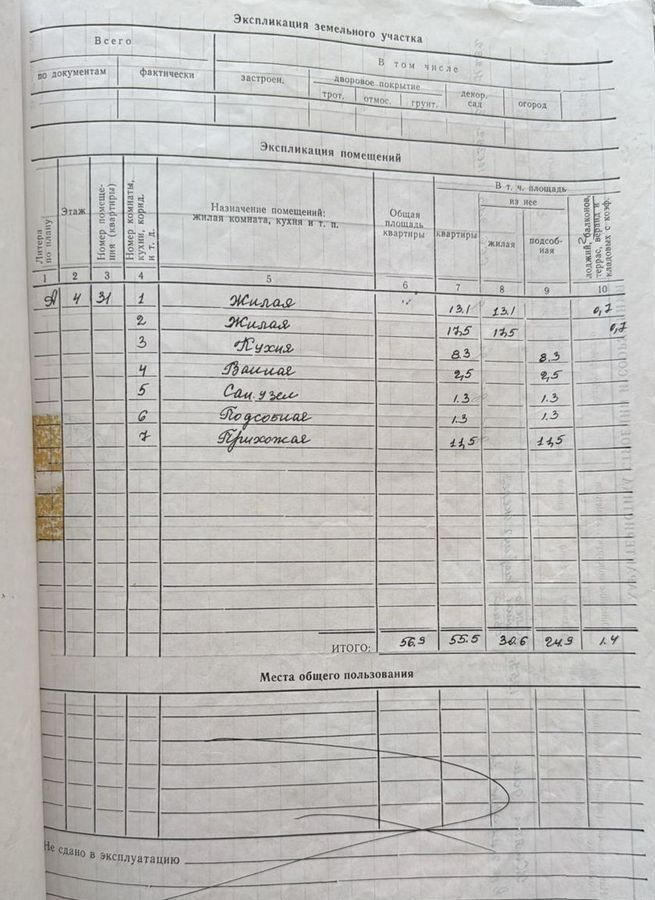 Экспликация земельного участка
Всего
В том числе
по документам фактически застроен. дворовое покрытие декор. сад огород
трот. отмос. грунт.
Экспликация помещений
Литера по плану
Этаж
Номер помещения (квартиры)
Номер комнаты, кухни, корид. и т. д.
Назначение помещений:
жилая комната, кухня и т. п.
Общая площадь квартиры
В т. ч. площадь
квартиры
из нее
жилая
подсобная
лоджий, балконов, террас, веранд и кладовых с коэф.
1 2 3 4 5 6 7 8 9 10
А 4 31 1 Жилая 13.1 13.1 0,7
2 Жилая 17,5 17,5 0,7
3 Кухня 8.3 8.3
4 Ванная 2,5 2,5
5 Сан. узел 1.3 1.3
6 Подсобная 1.3 1.3
7 Прихожая 11,5 11,5
ИТОГО: 56.9 55.5 30.6 24.9 1.4
Места общего пользования
Не сдано в эксплуатацию